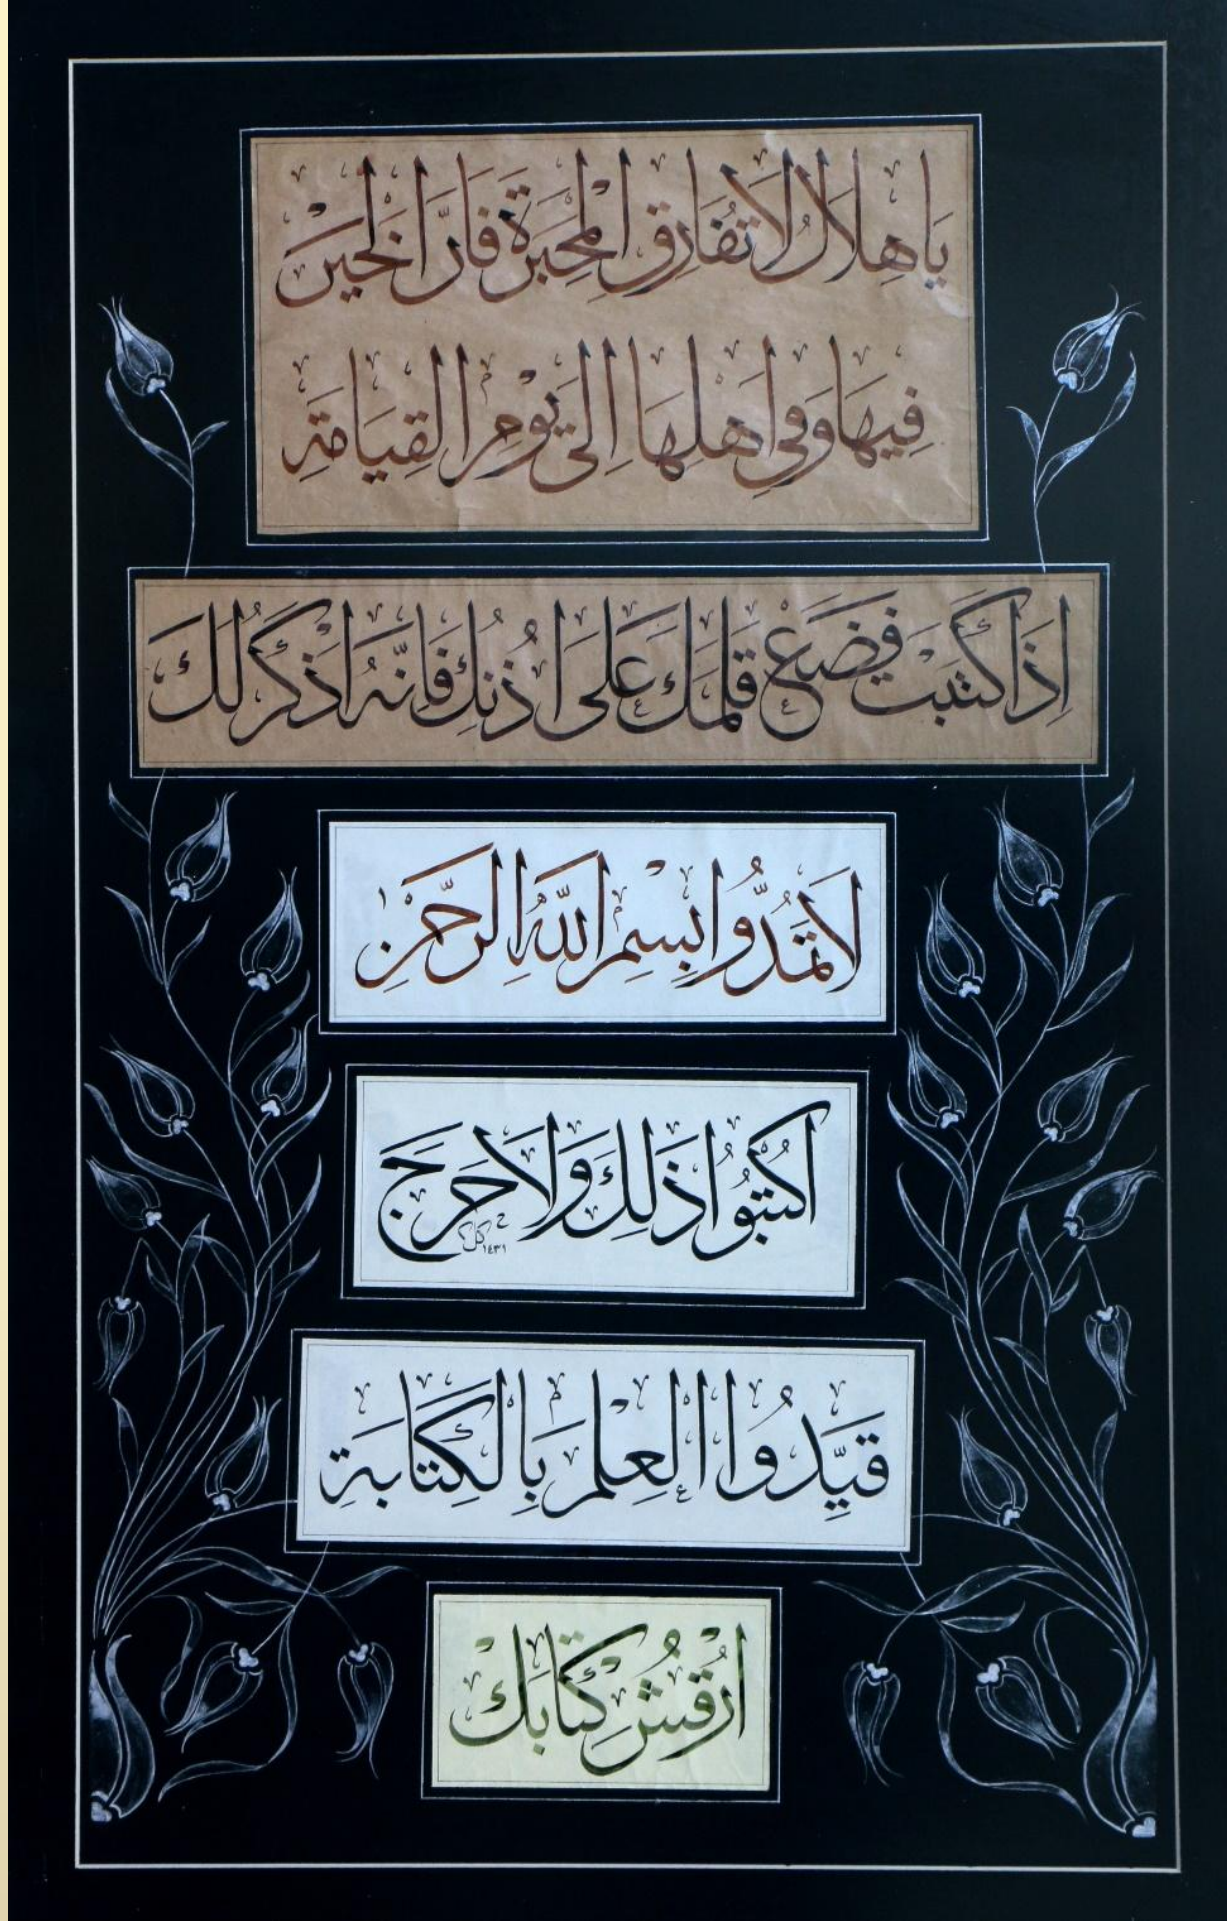 يَا هِلَالُ لَا تُفَارِقِ الْمِحْبَرَةَ فَاِنَّ الْخَيْرَ
فِيهَا وَفِي اَهْلِهَا اِلَى يَوْمِ الْقِيَامَةِ
اِذَا كَتَبْتَ فَضَعْ قَلَمَكَ عَلَى اُذُنِكَ فَاِنَّهُ اَذْكَرُ لَكَ
لَا تَمُدُّوا بِسْمِ اللّٰهِ الرَّحْمٰنِ
اُكْتُبُوا ذَلِكَ وَلَا حَرَجَ
١٤٣١
قَيِّدُوا الْعِلْمَ بِالْكِتَابَةِ
اُرْقُشْ كِتَابَكَ